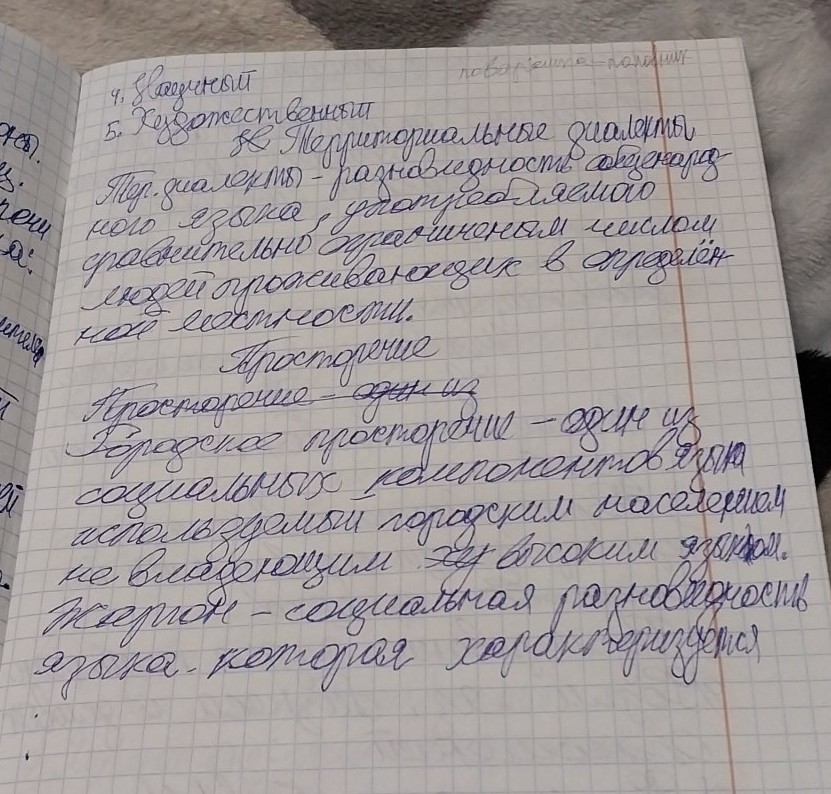 поварёшка-половник
4. Научный
5. Художественный
Территориальные диалекты
Тер. диалекты - разновидность общенарод-
ного языка, употребляемого
сравнительно ограниченым числом
людей проживающих в определён-
ной местности.
Просторечие
Просторечие - один из
Городское просторечие - один из
социальных компонентов языка
используемый городским населением
не владеющим ху высоким языком.
Жаргон - социальная разновидность
языка. которая характеризуется